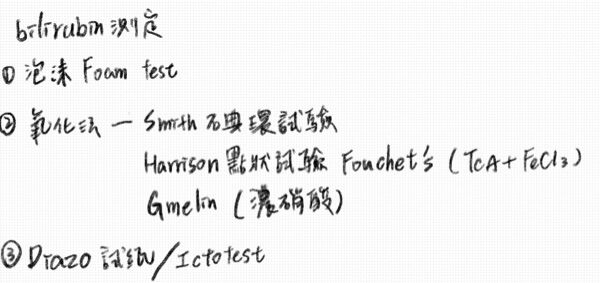 bilirubin 測定
① 泡沫 Foam test
② 氧化法 — Smith 石典環試驗
Harrison 點狀試驗 Fouchet's (TCA + FeCl₃)
Gmelin (濃硝酸)
③ Diazo 試紙/Ictotest